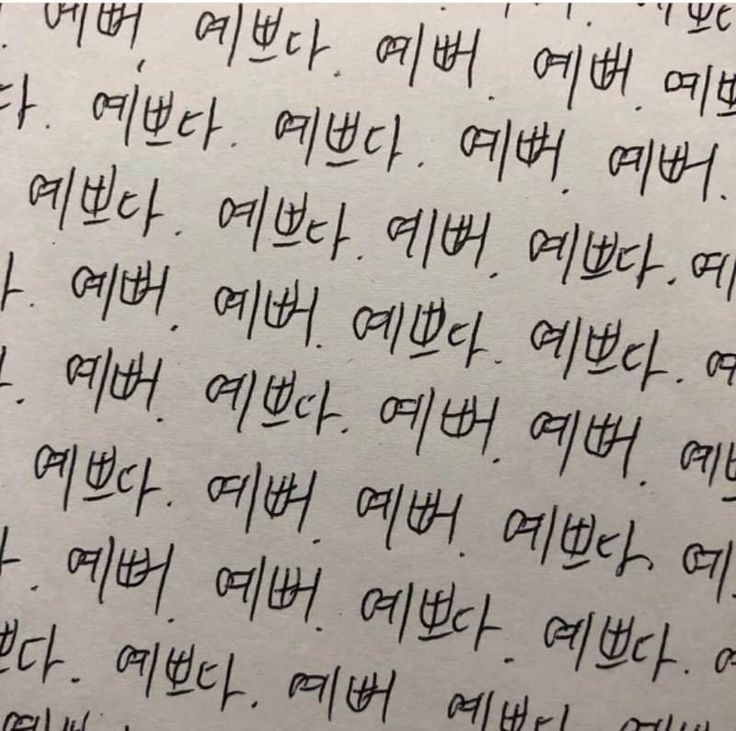 예뻐. 예쁘다. 예뻐. 예뻐. 예쁘
다. 예쁘다. 예쁘다. 예뻐. 예뻐.
예쁘다. 예쁘다. 예뻐. 예쁘다. 예
다. 예뻐. 예뻐. 예쁘다. 예쁘다. 예
예뻐. 예쁘다. 예뻐. 예뻐. 예쁘
예쁘다. 예뻐. 예뻐. 예쁘다. 예
예뻐. 예뻐. 예쁘다. 예쁘다.
쁘다. 예쁘다. 예뻐 예쁘다